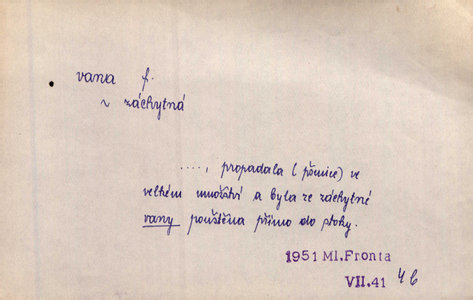 vana f.
~ záchytná
...., propadala (pšenice) ve
velkém množství a byla ze záchytné
vany pouštěna přímo do stoky.
1951 Ml. Fronta
VII. 41 4 6